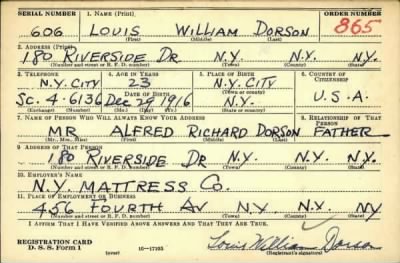 SERIAL NUMBER 1. NAME (Print) ORDER NUMBER
606 LOUIS WILLIAM DORSON 865
(First) (Middle) (Last)
2. ADDRESS (Print)
180 RIVERSIDE DR N.Y. N.Y. N.Y.
(Number and street or R. F. D. number) (Town) (County) (State)
3. TELEPHONE 4. AGE IN YEARS 5. PLACE OF BIRTH 6. COUNTRY OF CITIZENSHIP
N.Y. CITY 23 N.Y. CITY
DATE OF BIRTH (Town or county)
SC. 4-6136 Dec 29 1916 N.Y. U.S.A.
(Exchange) (Number) (Mo.) (Day) (Yr.) (State or country)
7. NAME OF PERSON WHO WILL ALWAYS KNOW YOUR ADDRESS 8. RELATIONSHIP OF THAT PERSON
MR ALFRED RICHARD DORSON FATHER
(Mr., Mrs., Miss) (First) (Middle) (Last)
9. ADDRESS OF THAT PERSON
180 RIVERSIDE DR N.Y. N.Y. N.Y.
(Number and street or R. F. D. number) (Town) (County) (State)
10. EMPLOYER'S NAME
N.Y. MATTRESS CO.
11. PLACE OF EMPLOYMENT OR BUSINESS
456 FOURTH AV N.Y. N.Y. NY
(Number and street or R. F. D. number) (Town) (County) (State)
I AFFIRM THAT I HAVE VERIFIED ABOVE ANSWERS AND THAT THEY ARE TRUE.
REGISTRATION CARD
D. S. S. Form 1 (over) 16—17105 Louis William Dorson
(Registrant's signature)